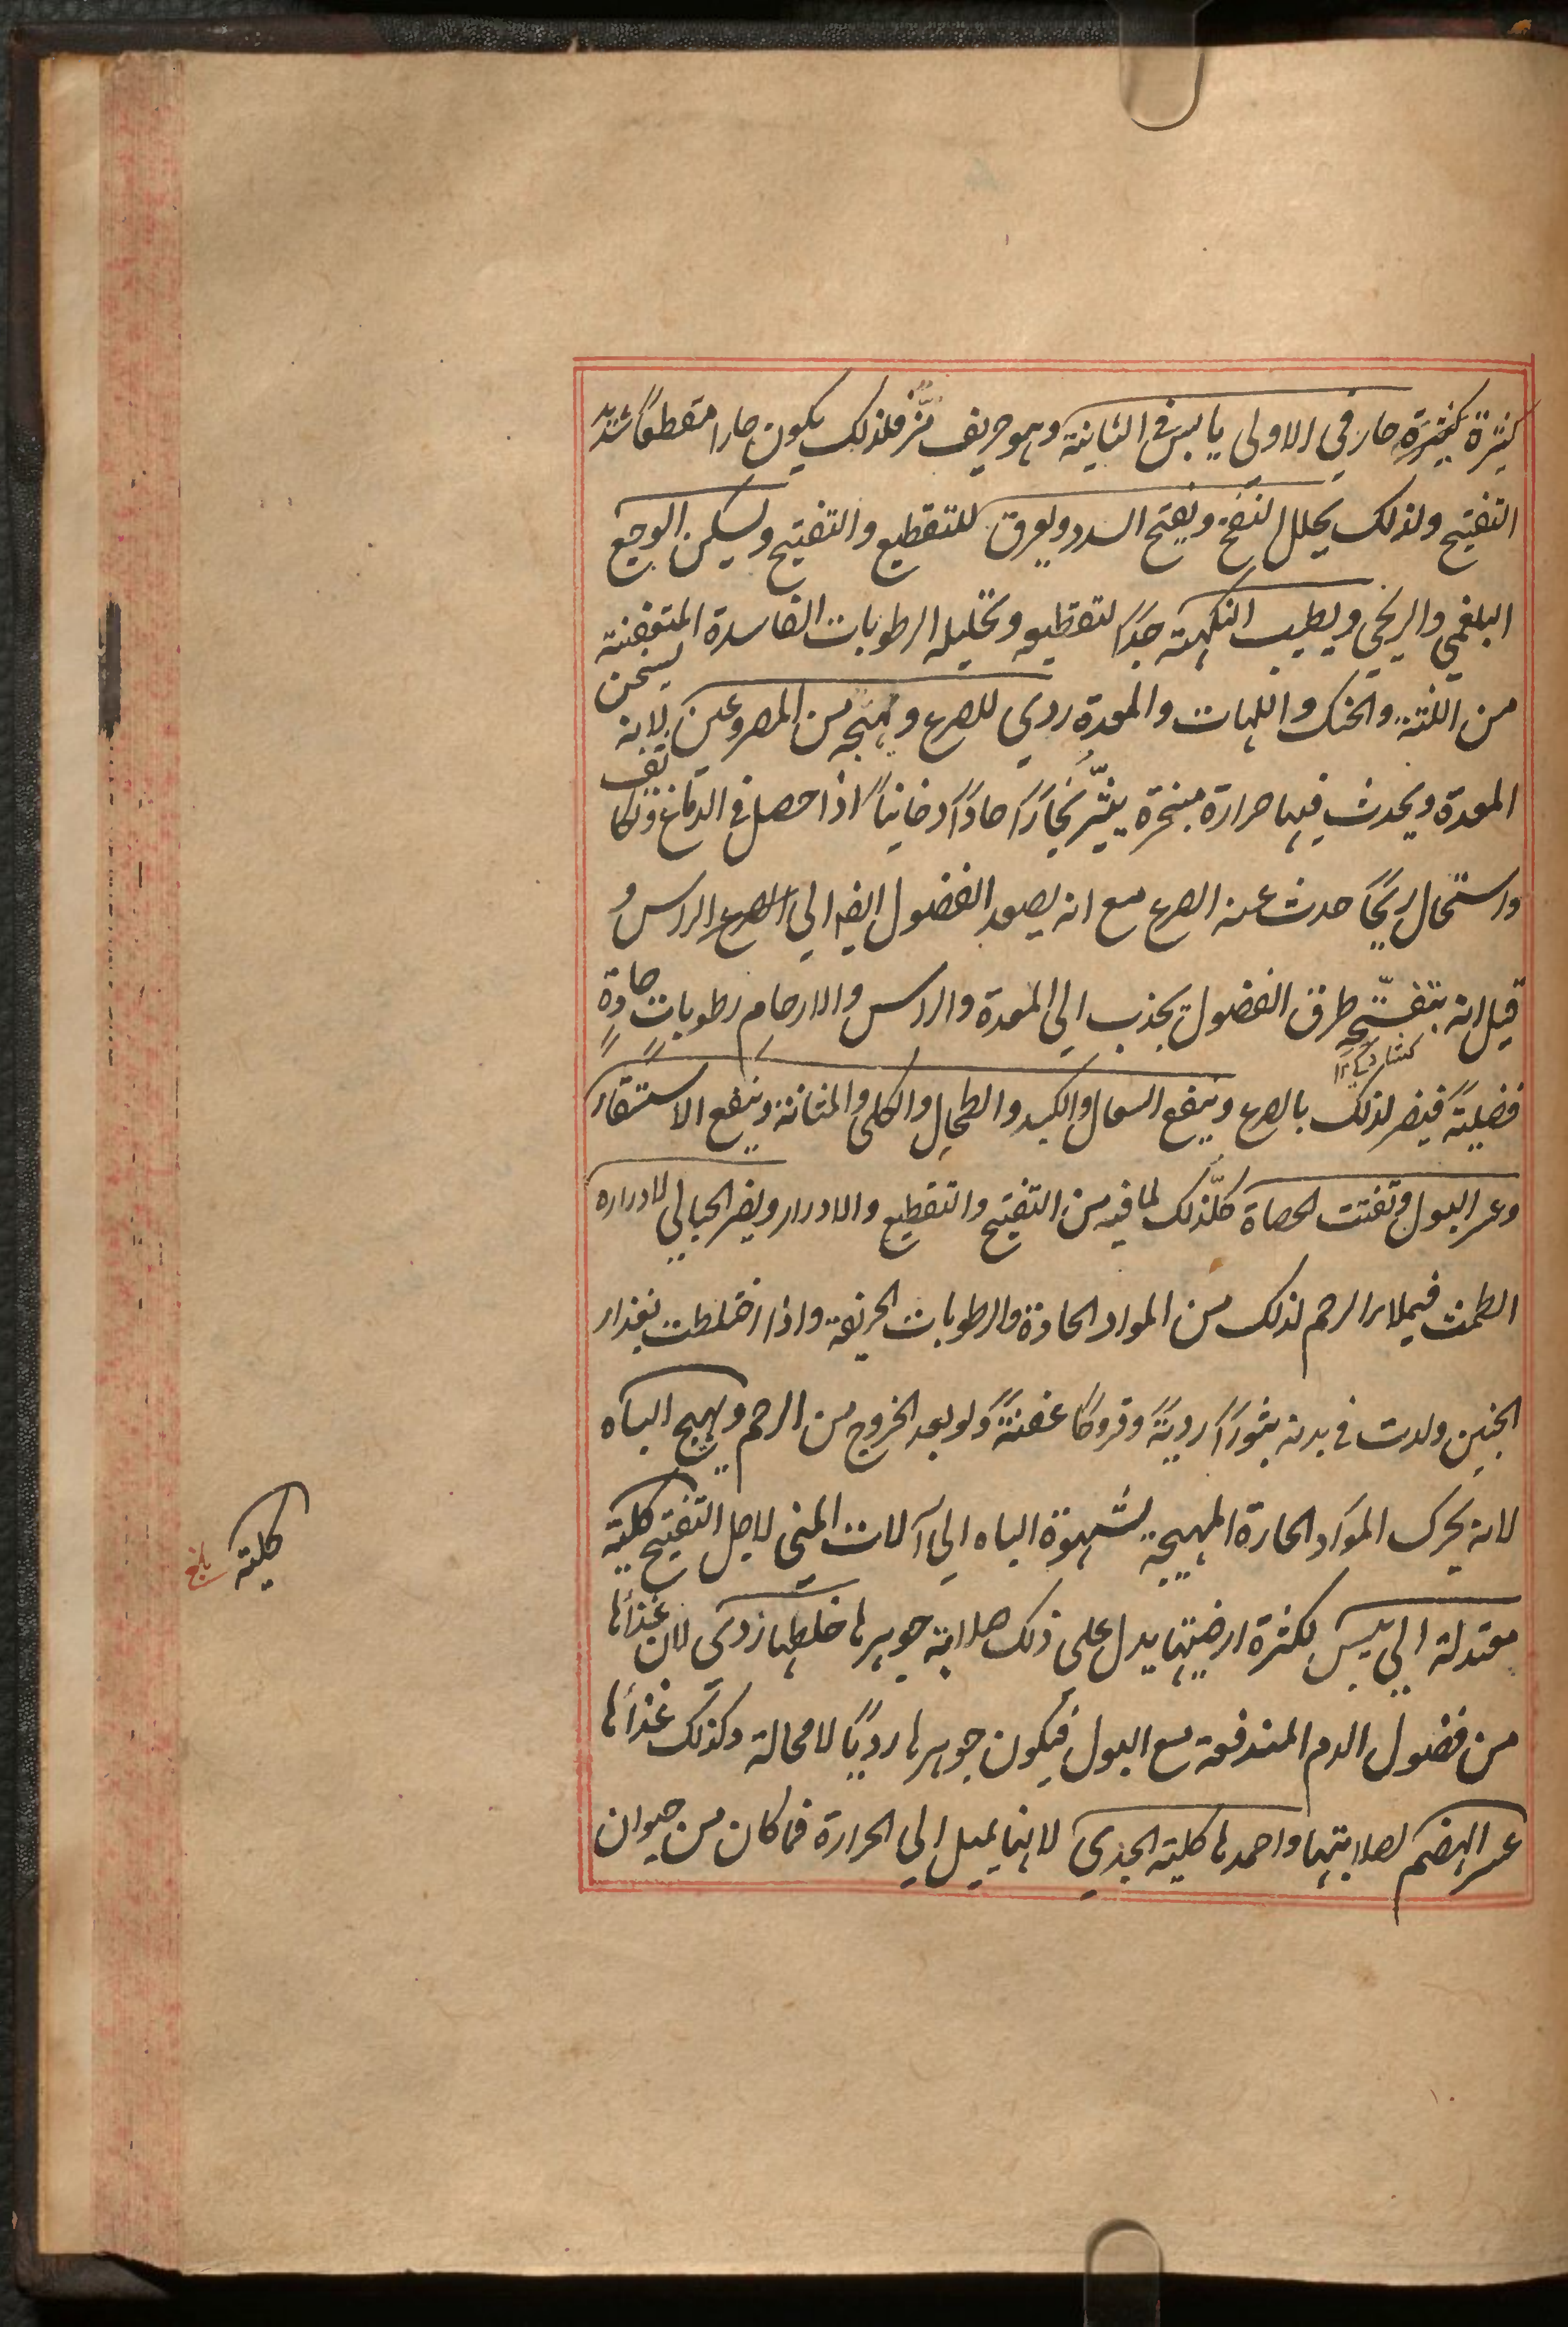 كثرة كثيرة حار في الاولى يابس في الثانية وهو حريف مرّ فلذلك يكون حارا مقطعاً شديد
التفتيح ولذلك يحلل النفخ ويفتح السدد ويعرق للتقطيع والتفتيح ويسكن الوجع
البلغمي والريحي ويطيب النكهة جدّاً لتقطيعه وتحليله الرطوبات الفاسدة المتعفنة
من اللثة والحنك واللهات والمعدة ردي للصرع ويهيجه من المصروعين لانه يسخن
المعدة ويحدث فيها حرارة مبخرة يثيّر بخاراً حاداً دخانياً اذا حصل في الدماغ وتكاثف
واستحال ريحاً حدث عنه الصرع مع انه يصعد الفضول ايضا الى الصرع الراس و
قيل انه بتفتّيح طرق الفضول يجذب الى المعدة والراس والارحام رطوبات حادة
فضليةً فيضر لذلك بالصرع وينفع السعال والكبد والطحال والكلى والمثانة وينفع الاستسقاء
وعسر البول وتفتت الحصاة كلّذلك لما فيه من التفتيح والتقطيع والادرار ويضر الحبالى لادراره
الطمث فيملاء الرحم لذلك من المواد الحادة والرطوبات الحريفة واذا اختلطت بغذاء
الجنين ولدت في بدنه بثوراً رديةً وقروحاً عفنةً ولو بعد الخروج من الرحم ويهيج الباه
لانه يحرك المواد الحارة المهيجة لشهوة الباه الى آلات المني لاجل التفتيح كلية
معتدلة الى يبس لكثرة ارضيتها يدل على ذلك صلابة جوهرها خلطها ردي لان غذائها
من فضول الدم المندفعة مع البول فيكون جوهرها ردياً لا محالة وكذلك غذائها
عسر الهضم لصلابتها واحمدها كلية الجدي لانها يميل الى الحرارة فما كان من حيوان
كلية
بلغ